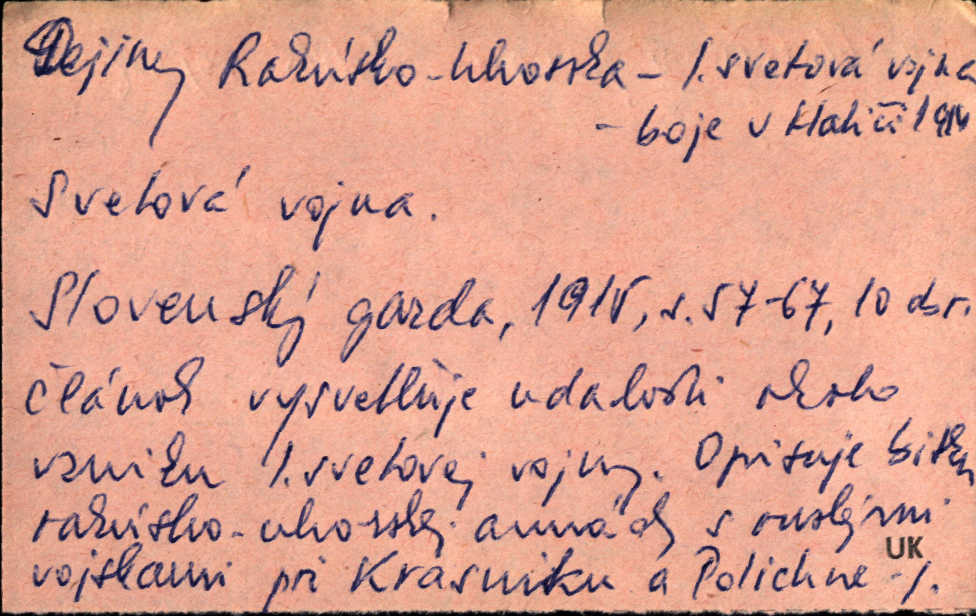 Dejiny Rakúsko-Uhorska - 1. svetová vojna
- boje v Haliči 1914
Svetová vojna.
Slovenský garda, 1915, s. 57-67, 10 obr.
článok vysvetluje udalosti okolo
vzniku 1. svetovej vojny. Opisuje bitku
rakúsko-uhorskej armády s ruskými
vojskami pri Krásniku a Polichne -/.
UK